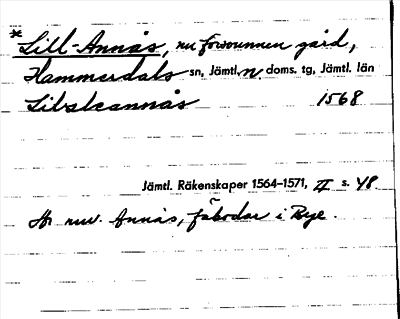 * Lill-Annås, nu försvunnen gård,
Hammerdals sn, Jämtl. N. doms. tg, Jämtl. län
1568
Jämtl. Räkenskaper 1564–1571, II s. 48
nuv. Annås, fäbodar i Bye.